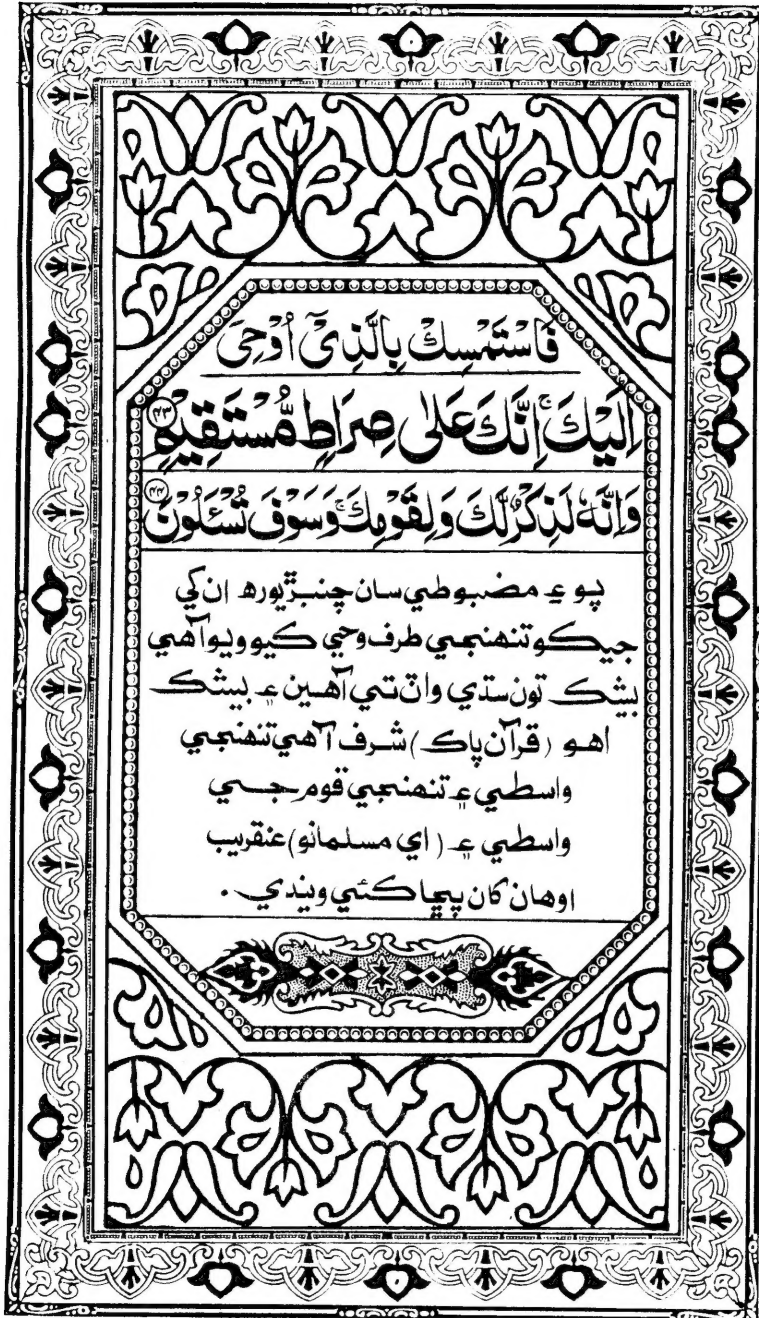 فَاسْتَمْسِكْ بِالَّذِيْٓ اُوْحِيَ
اِلَيْكَ ۚ اِنَّكَ عَلٰى صِرَاطٍ مُّسْتَقِيْمٍ ۴۳
وَاِنَّهٗ لَذِكْرٌ لَّكَ وَلِقَوْمِكَ ۚ وَسَوْفَ تُسْـَٔلُوْنَ ۴۴
پوءِ مضبوطي سان چنبڙيو رھ ان کي
جيڪو تنھنجي طرف وحي ڪيو ويو آھي
بيشڪ تون سڌي واٽ تي آھين ۽ بيشڪ
اھو (قرآن پاڪ) شرف آھي تنھنجي
واسطي ۽ تنھنجي قوم جي
واسطي ۽ (اي مسلمانو) عنقريب
اوھان کان پڇا ڪئي ويندي .